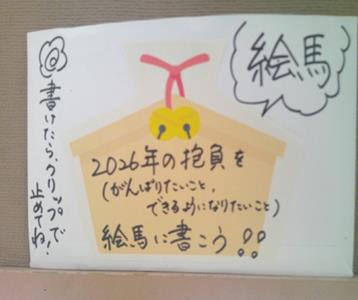 絵馬
2026年の抱負を
(がんばりたいこと、
できるようになりたいこと)
絵馬に書こう!!
書けたら、クリップで
止めてね!